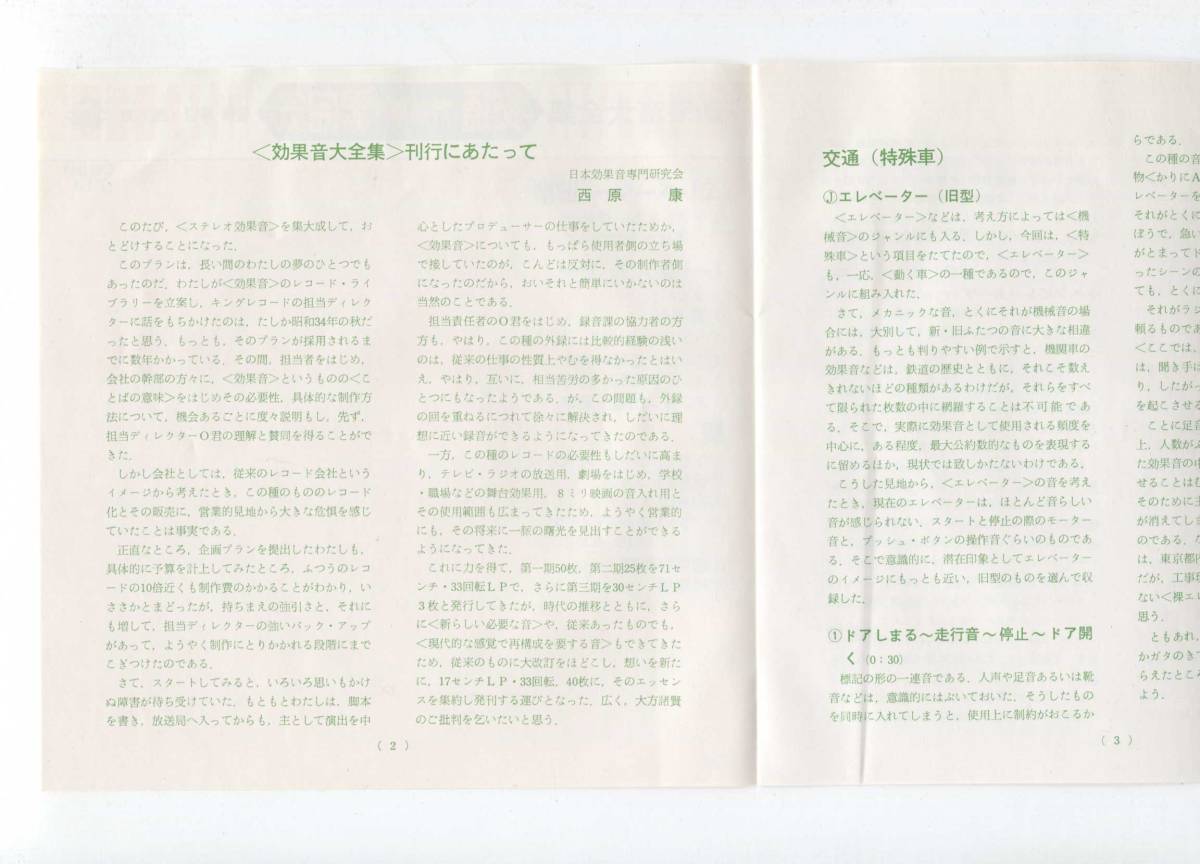 <効果音大全集>刊行にあたって
日本効果音専門研究会
西原 康
このたび，<ステレオ効果音>を集大成して，お
とどけすることになった．
このプランは，長い間のわたしの夢のひとつでも
あったのだ．わたしが<効果音>のレコード・ライ
ブラリーを立案し，キングレコードの担当ディレク
ターに話をもちかけたのは，たしか昭和34年の秋だ
ったと思う．もっとも，そのプランが採用されるま
でに数年かかっている．その間，担当者をはじめ，
会社の幹部の方々に，<効果音>というものの<こ
とばの意味>をはじめその必要性，具体的な制作方
法について，機会あるごとに度々説明もし，先ず，
担当ディレクターO君の理解と賛同を得ることがで
きた．
しかし会社としては，従来のレコード会社という
イメージから考えたとき，この種のもののレコード
化とその販売に，営業的見地から大きな危惧を感じ
ていたことは事実である．
正直なところ，企画プランを提出したわたしも，
具体的に予算を計上してみたところ，ふつうのレコ
ードの10倍近くも制作費のかかることがわかり，い
ささかとまどったが，持ちまえの強引さと，それに
も増して，担当ディレクターの強いバック・アップ
があって，ようやく制作にとりかかれる段階にまで
こぎつけたのである．
さて，スタートしてみると，いろいろ思いもかけ
ぬ障害が待ち受けていた．もともとわたしは，脚本
を書き，放送局へ入ってからも，主として演出を中
心としたプロデューサーの仕事をしていたためか，
<効果音>についても，もっぱら使用者側の立ち場
で接していたのが，こんどは反対に，その制作者側
になったのだから，おいそれと簡単にいかないのは
当然のことである．
担当責任者のO君をはじめ，録音課の協力者の方
方も，やはり，この種の外録には比較的経験の浅い
のは，従来の仕事の性質上やむを得なかったとはい
え，やはり，互いに，相当苦労の多かった原因のひ
とつにもなったようである．が，この問題も，外録
の回を重ねるにつれて徐々に解決され，しだいに理
想に近い録音ができるようになってきたのである．
一方，この種のレコードの必要性もしだいに高ま
り，テレビ・ラジオの放送用，劇場をはじめ，学校
・職場などの舞台効果用，8ミリ映画の音入れ用と
その使用範囲も広まってきたため，ようやく営業的
にも，その将来に一脈の曙光を見出すことができる
ようになってきた．
これに力を得て，第一期50枚，第二期25枚を71セ
ンチ・33回転LPで，さらに第三期を30センチLP
3枚と発行してきたが，時代の推移とともに，さら
に<新らしい必要な音>や，従来あったものでも，
<現代的な感覚で再構成を要する音>もでてきてた
ため，従来のものに大改訂をほどこし，想いを新た
に，17センチLP・33回転，40枚に，そのエッセン
スを集約し発刊する運びとなった．広く，大方諸賢
のご批判を乞いたいと思う．
( 2 )
交通（特殊車）
Ⓙエレベーター（旧型）
<エレベーター>などは，考え方によっては<機
械音>のジャンルにも入る．しかし，今回は，<特
殊車>という項目をたてたので，<エレベーター>
も，一応，<動く車>の一種であるので，このジャ
ンルに組み入れた．
さて，メカニックな音，とくにそれが機械音の場
合には，大別して，新・旧ふたつの音に大きな相違
がある．もっとも判りやすい例で示すと，機関車の
効果音などは，鉄道の歴史とともに，それこそ数え
きれないほどの種類があるわけだが，それらをすべ
て限られた枚数の中に網羅することは不可能であ
る．そこで，実際に効果音として使用される頻度を
中心に，ある程度，最大公約数的なものを表現する
に留めるほか，現状では致しかたないわけである．
こうした見地から，<エレベーター>の音を考え
たとき，現在のエレベーターは，ほとんど音らしい
音が感じられない．スタートと停止の際のモーター
音と，プッシュ・ボタンの操作音ぐらいのものであ
る．そこで意識的に，潜在印象としてエレベーター
のイメージにもっとも近い，旧型のものを選んで収
録した．
①ドアしまる～走行音～停止～ドア開
く（0：30）
標記の形の一連音である．人声や足音あるいは靴
音などは，意識的にはぶいておいた．そうしたもの
を同時に入れてしまうと，使用上に制約がおこるか
( 3 )
らである．
この種の音
物<かりにA
レベーターを
それがとくに
ぼうで，急い
がとまってド
ったシーンの
ても，とくに
それがラジ
頼るものであ
<ここでは，
は，聞き手に
り，したがっ
を起こさせる
ことに足音
上，人数がふ
た効果音の中
せることはむ
そのために主
が消えてし
のである．な
は，東京都内
だが，工事
ない<裸エレ
思う．
ともあれ，
かガタのきて
らえたところ
よう．